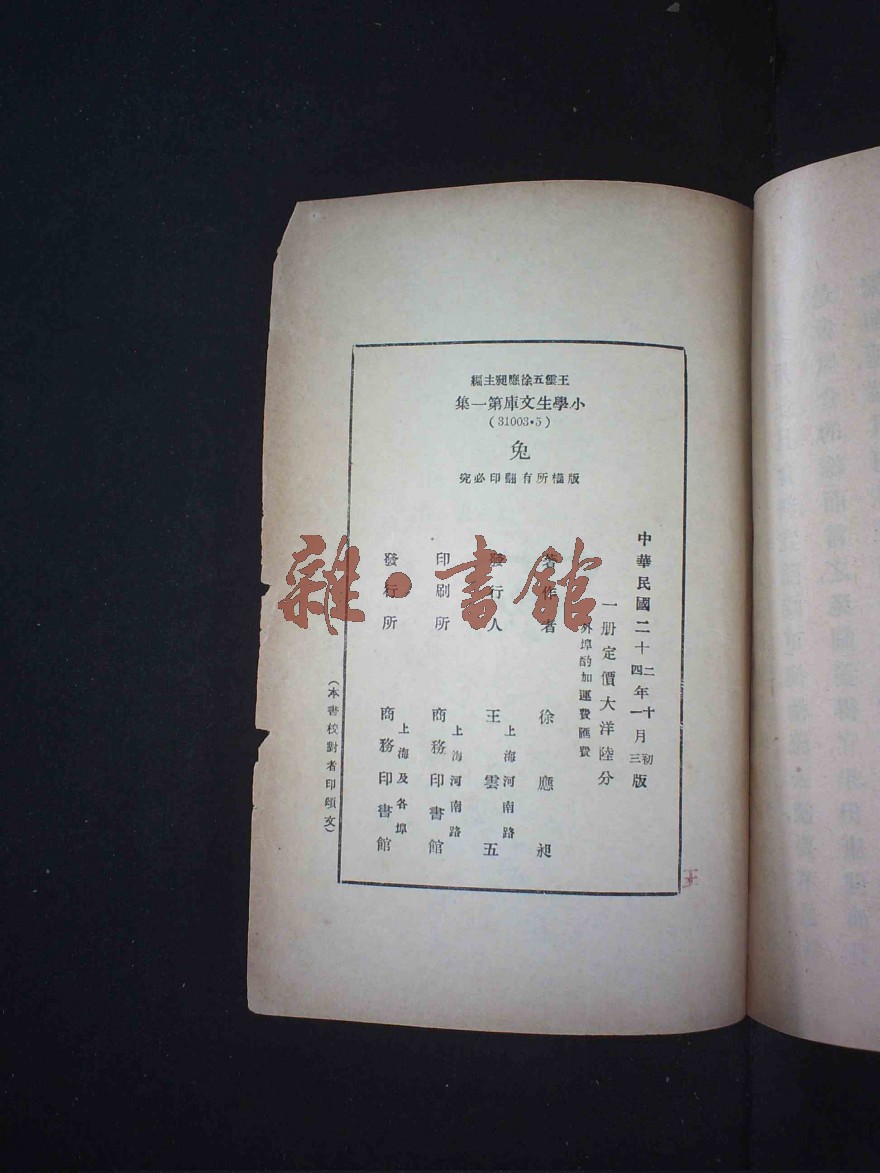 王雲五徐應昶主編
小學生文庫第一集
(31003·5)
兔
版權所有翻印必究
中華民國二十二四年十一月初三版
一册定價大洋陸分
外埠酌加運費匯費
著作者 徐應昶
發行人 上海河南路 王雲五
印刷所 上海河南路 商務印書館
發行所 上海及各埠 商務印書館
(本書校對者印頌文)
雜·書館